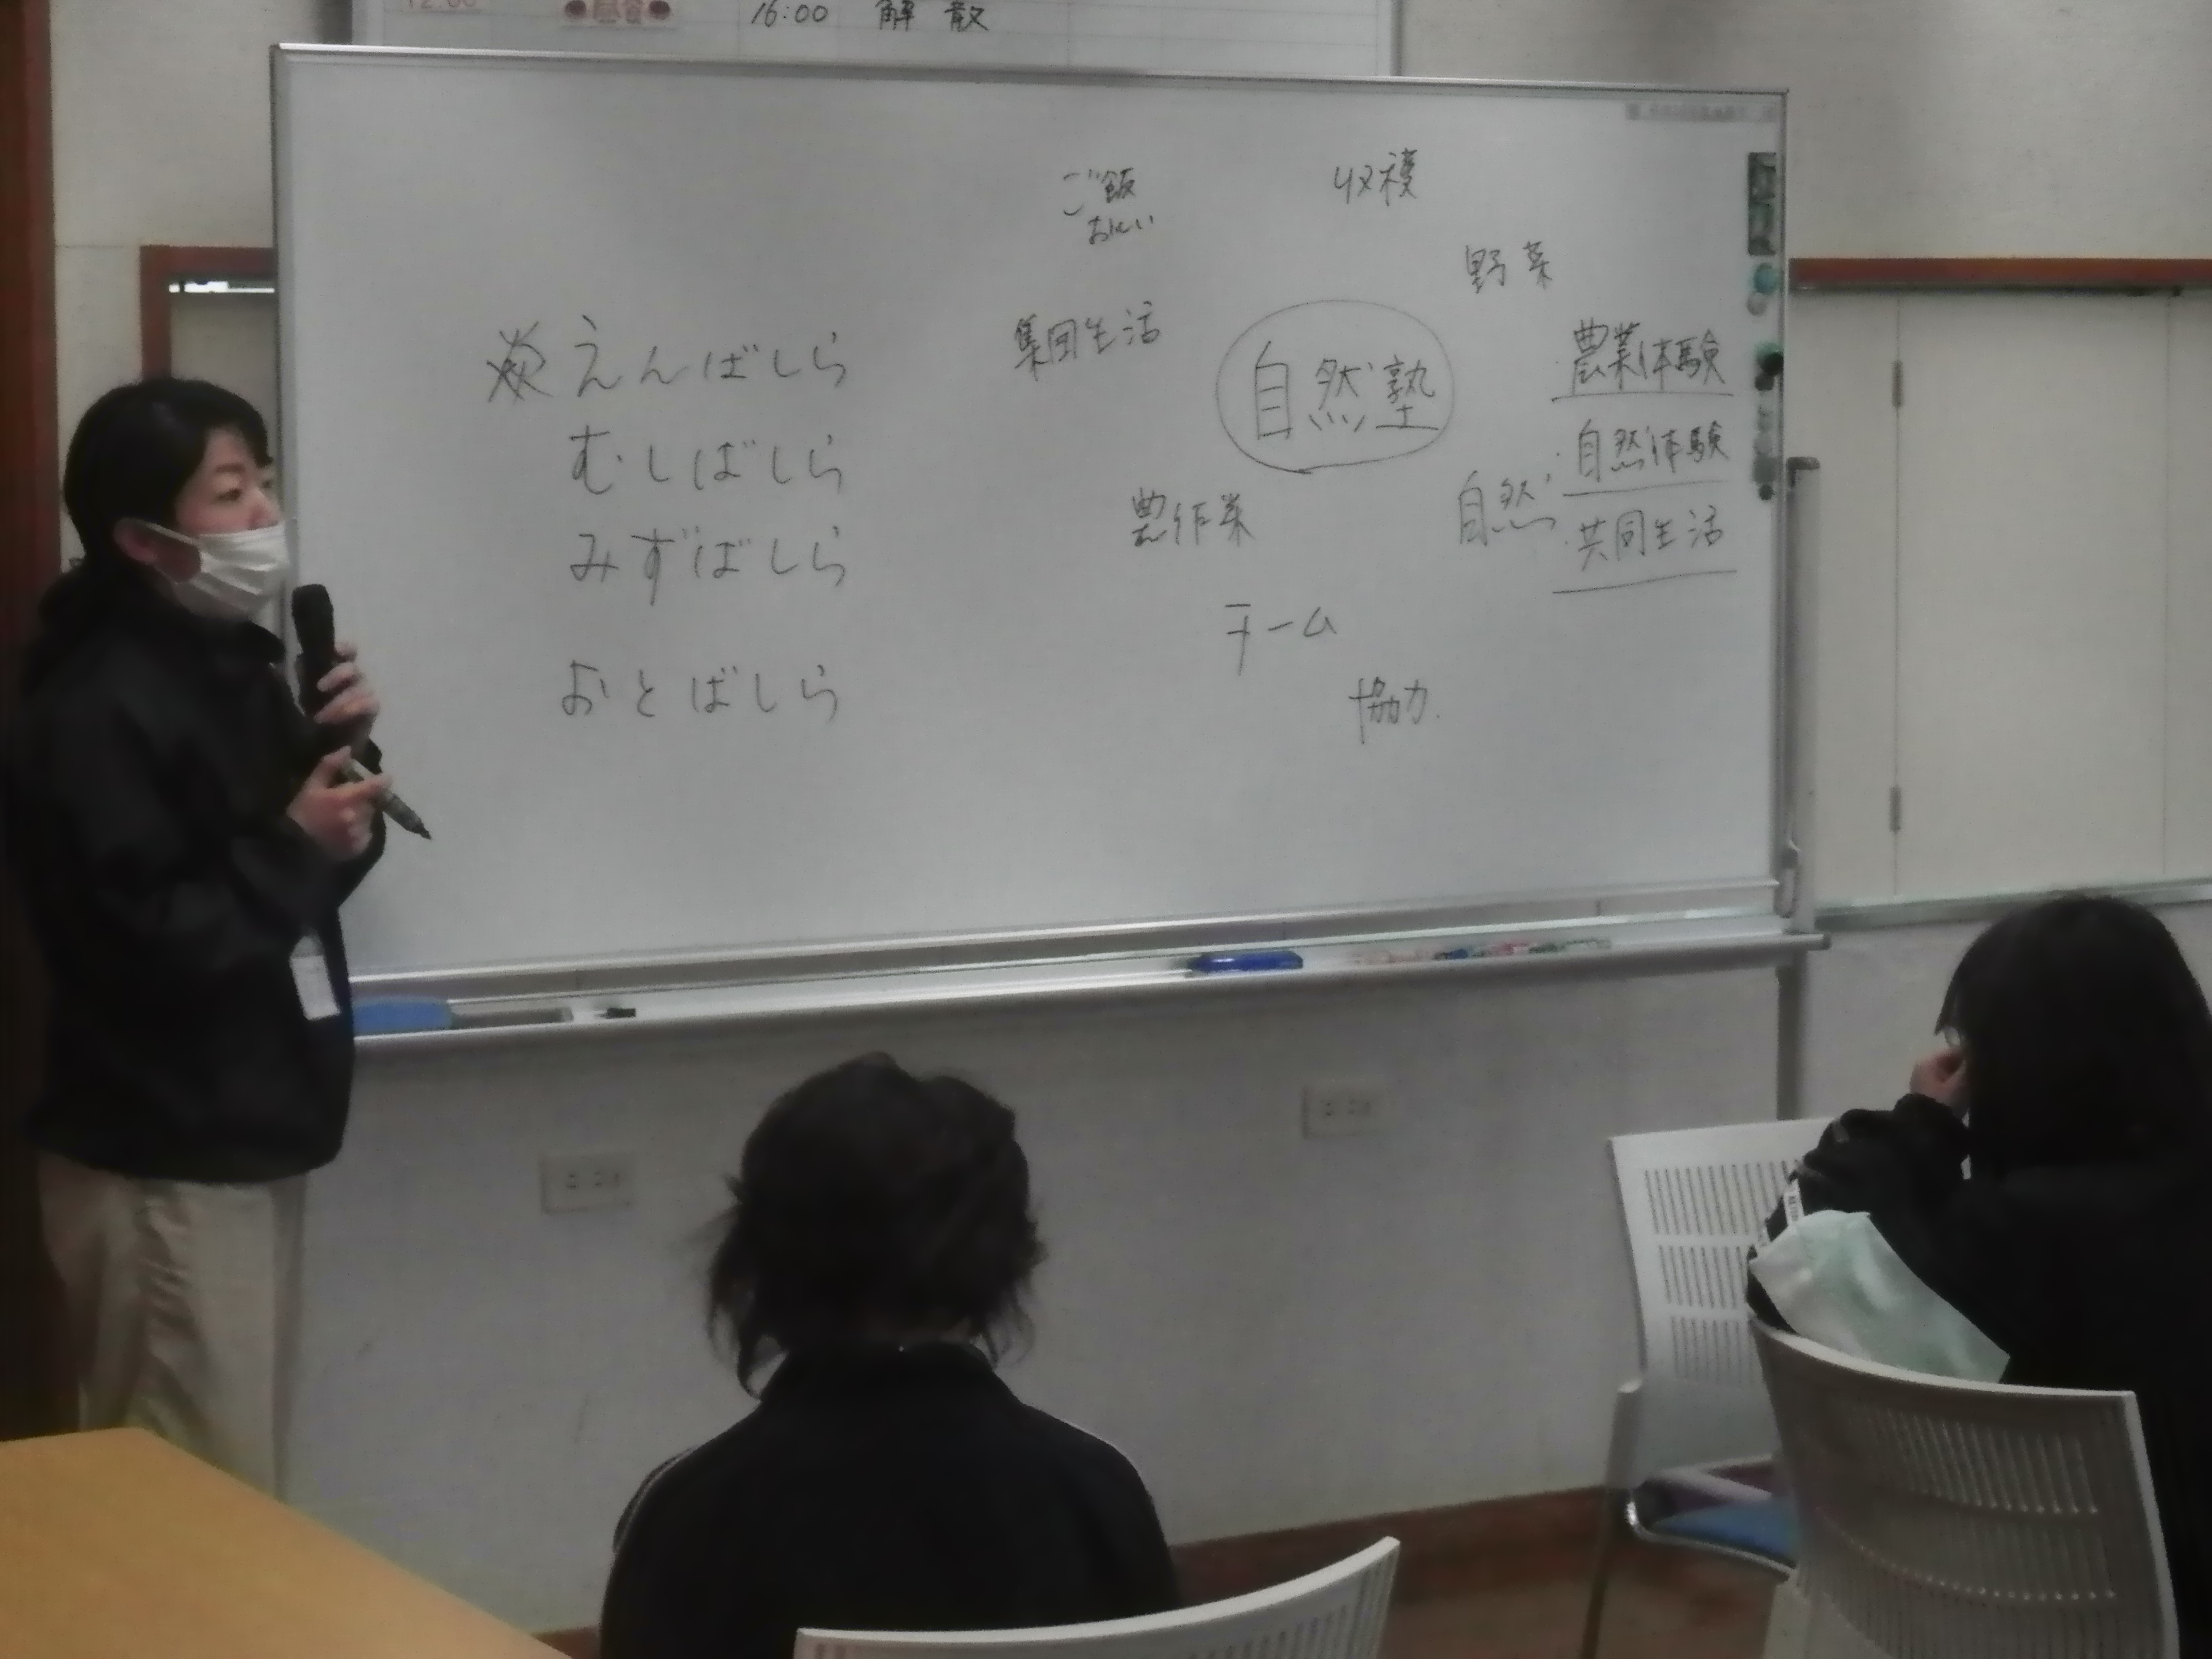 12:00 昼食 16:00 解散
えんばしら
むしばしら
みずばしら
おとばしら
ご飯
収穫
野菜
集団生活
自然塾
農業体験
自然体験
自然
共同生活
農作業
チーム
協力.